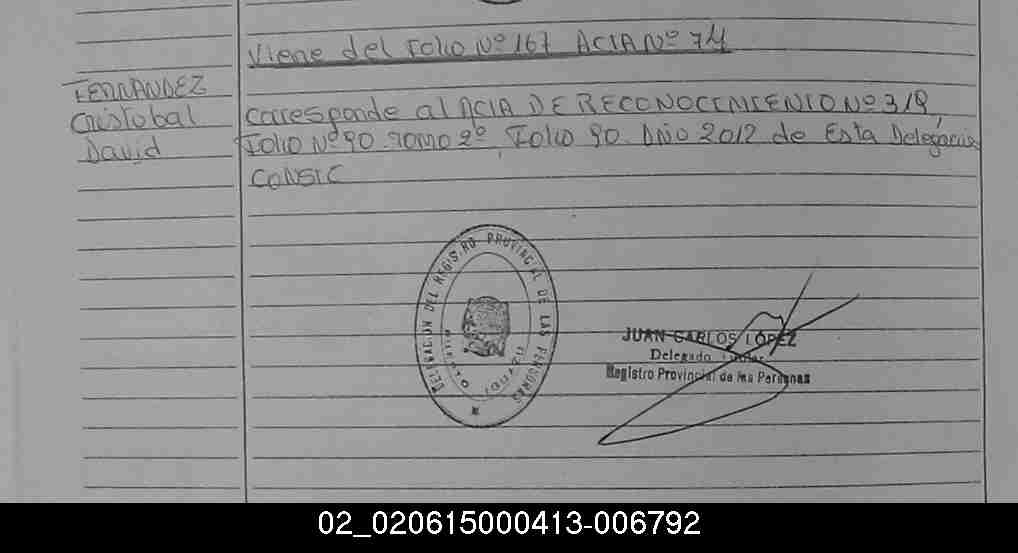 Viene del Folio Nº 167 ACTA Nº 74
FERNANDEZ
Cristobal
David
Corresponde al ACTA DE RECONOCIMIENTO Nº 319,
Folio Nº 90 Tomo 2º, Folio 90. Año 2012 de Esta Delegación
CONSTE
DELEGACION DEL REGISTRO PROVINCIAL DE LAS PERSONAS
JUAN CARLOS LOPEZ
Delegado Titular
Registro Provincial de las Personas
02_020615000413-006792